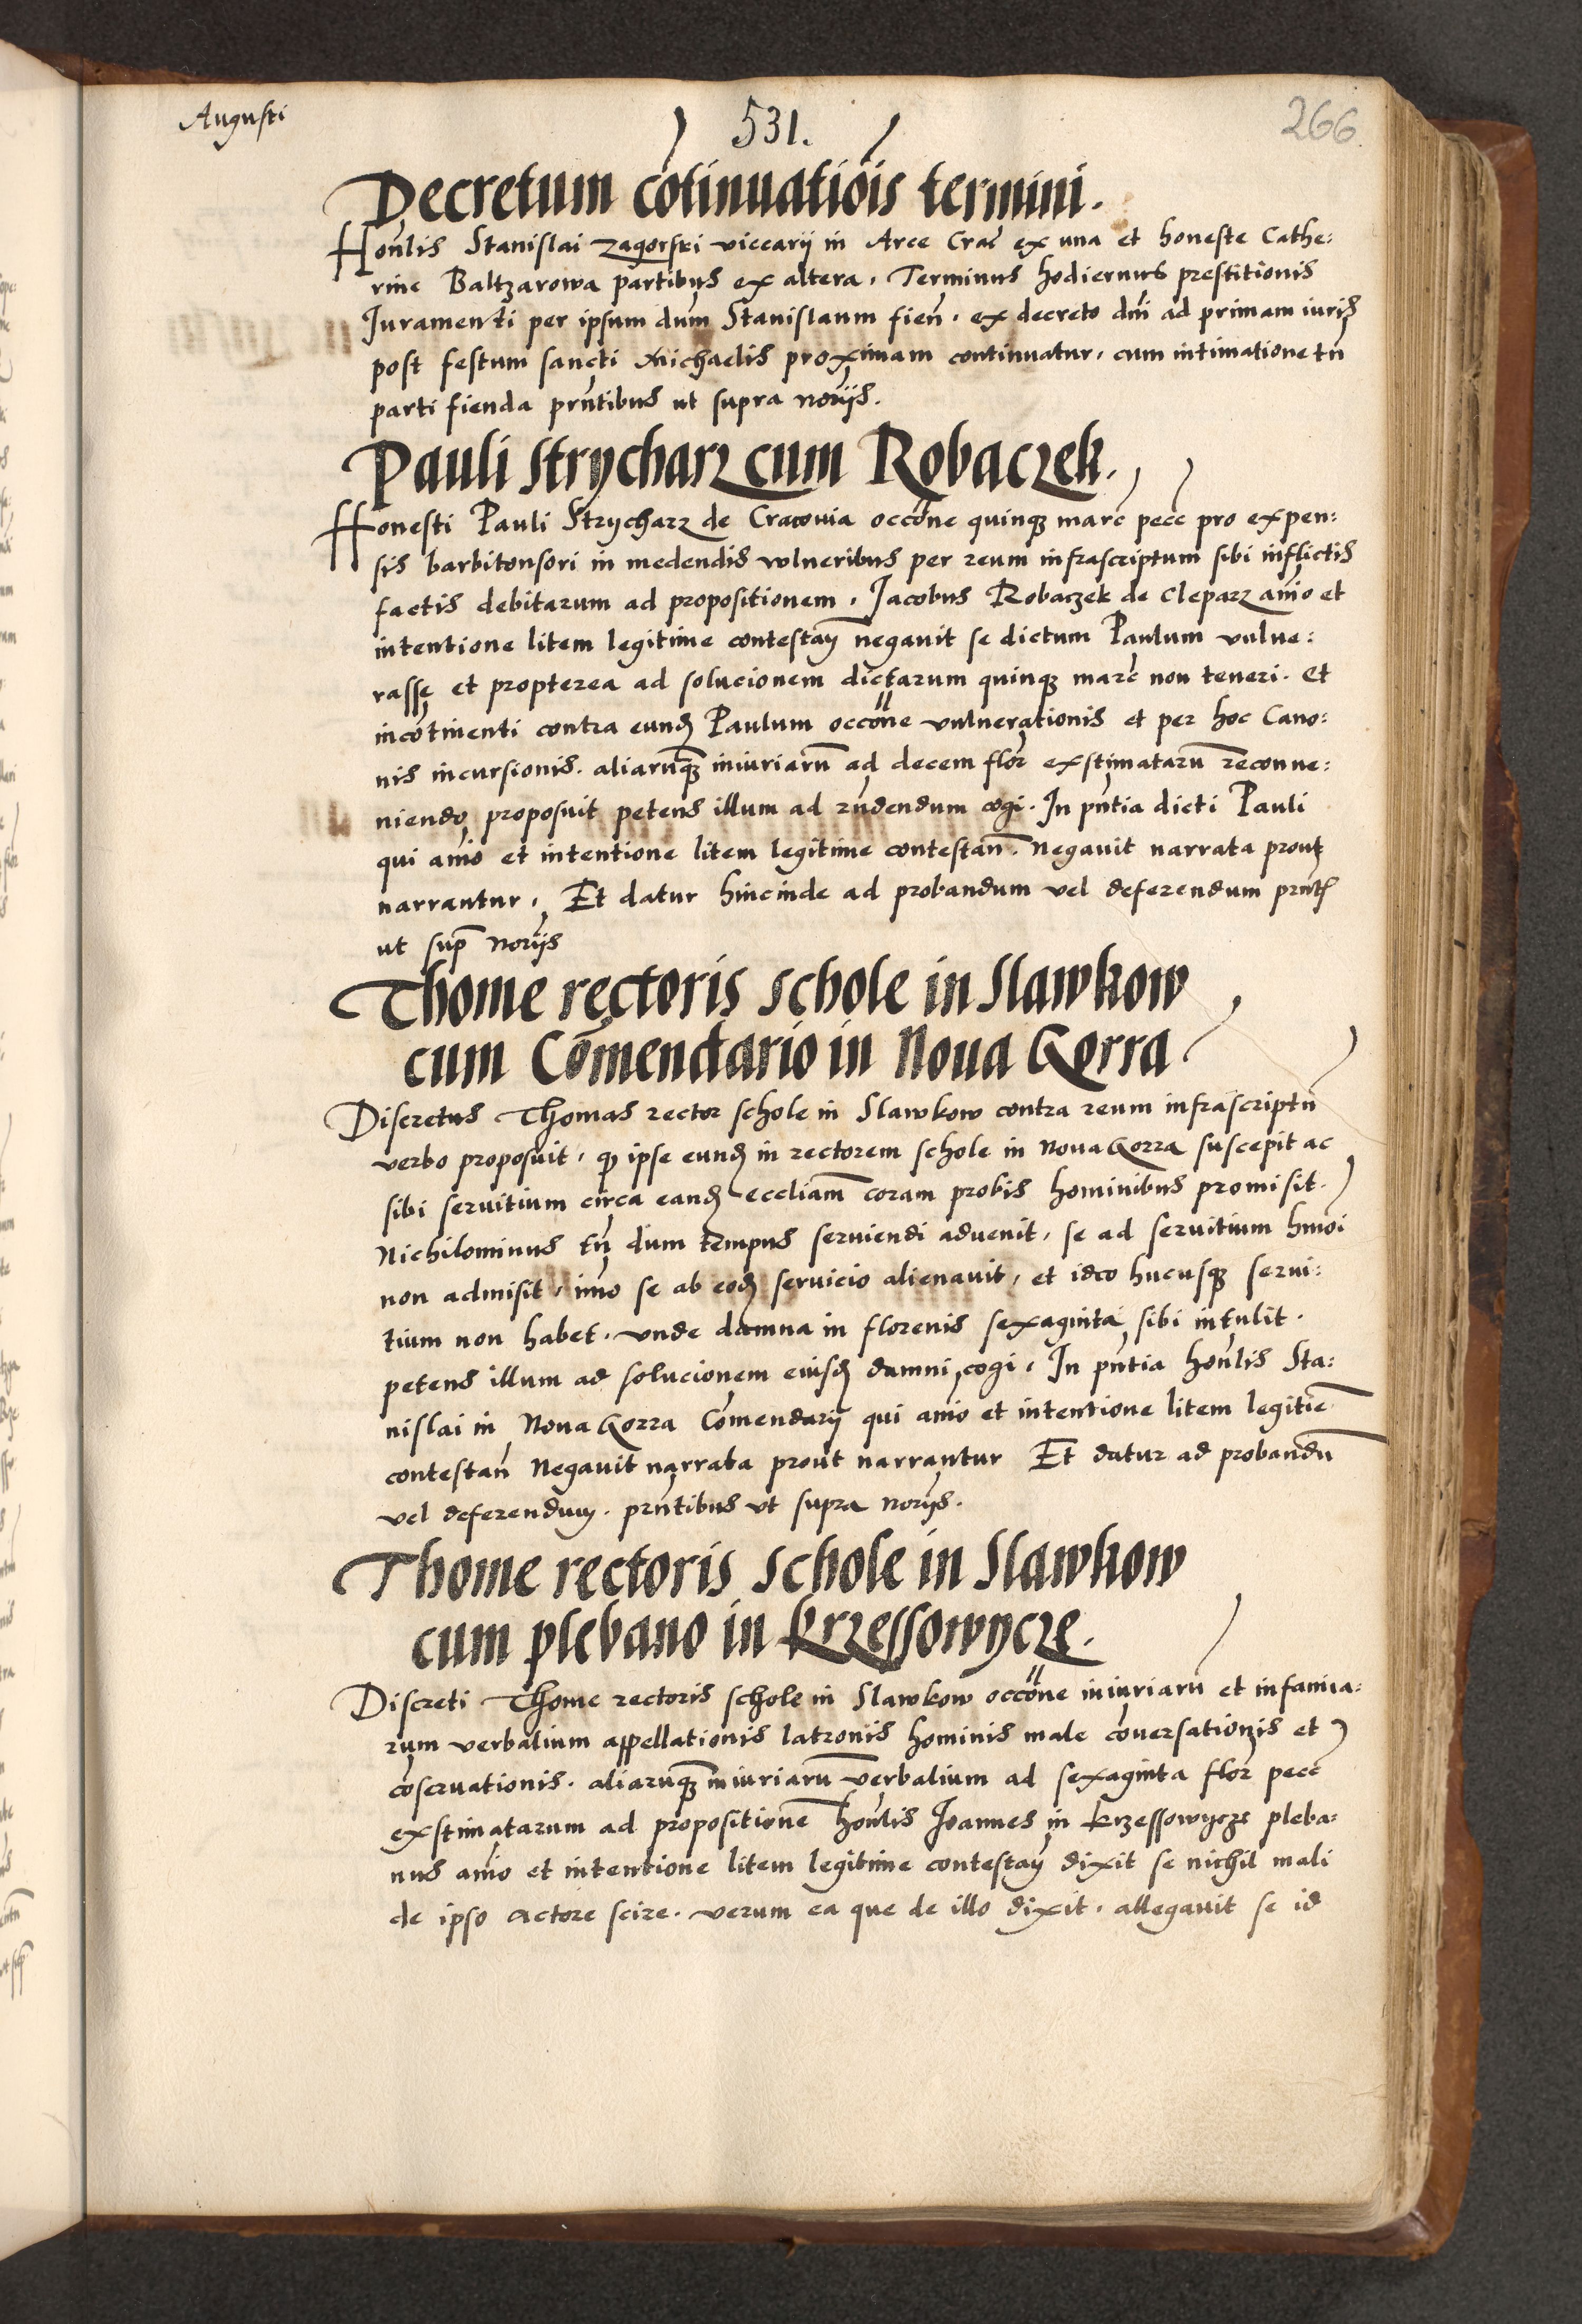 Augusti
531.
266
Decretum cōtinuatiōis termini.
Honlis Stanislai Zagorski viccarij in Arce Crac ex una et honeste Cathe:
rine Baltzarowa partibus ex altera. Terminus hodiernus prestitionis
Juramenti per ipsum dnm Stanislaum fien. ex decreto dni ad primam iuris
post festum sancti Michaelis proximam continuatur. cum intimatione tn
parti fienda prntibus ut supra norijs.
Pauli Strycharz cum Robaczek.
Honesti Pauli Strycharz de Cracovia occōne quinqꝫ marc pecc pro expen:
sis barbitonsori in medendis vulneribus per reum infrascriptum sibi inflictis
factis debitarum ad propositionem. Jacobus Robaczek de Cleparz aīo et
intentione litem legitime contestan negavit se dictum Paulum vulne:
rasse et propterea ad solucionem dictarum quinqꝫ marc non teneri. Et
incōtinenti contra eund Paulum occōne vulnerationis et per hoc Cano:
nis incursionis. aliarūqꝫ iniuriarū ad decem flor extimatarū reconue:
niendo proposuit petens illum ad rndendum cogi. In pntia dicti Pauli
qui aīo et intentione litem legitime contestan. Negauit narrata prout
narrantur. Et datur hincinde ad probandum vel deferendum prntibus
ut sup norijs
Thome rectoris schole in Slawkow
cum Cōmendario in Noua Gorra
Discretus Thomas rector schole in Slawkow contra reum infrascriptū
verbo proposuit. qꝫ ipse eund in rectorem schole in Noua Gorra suscepit ac
sibi seruitium circa eand eccliam coram probis hominibus promisit.
Nichilominus tn dum tempus seruiendi aduenit. se ad seruitium hmoi
non admisit. imo se ab eod servicio alienavit. et ideo hucusqꝫ serui:
tium non habet. unde damna in florenis sexaginta sibi intulit.
petens illum ad solucionem eiusd damni cogi. In pntia honlis Sta:
nislai in Noua Gorra Cōmendarij qui aīo et intentione litem legitīe
contestan Negauit narrata prout narrantur Et datur ad probandū
vel deferendum. prntibus ut supra norijs.
Thome rectoris schole in Slawkow
cum plebano in Krzessowycze.
Discreti Thome rectoris schole in Slawkow occōne iniuriarū et infamia:
rum verbalium appellationis latronis hominis male cōuersationis et
cōseruationis. aliarūqꝫ iniuriarū verbalium ad sexaginta flor pecc
extimatarum ad propositionē honlis Joannes in Krzessowycze pleba:
nus aīo et intentione litem legitime contestan dixit se nichil mali
de ipso actore scire. verum ea que de illo dixit. allegauit se id